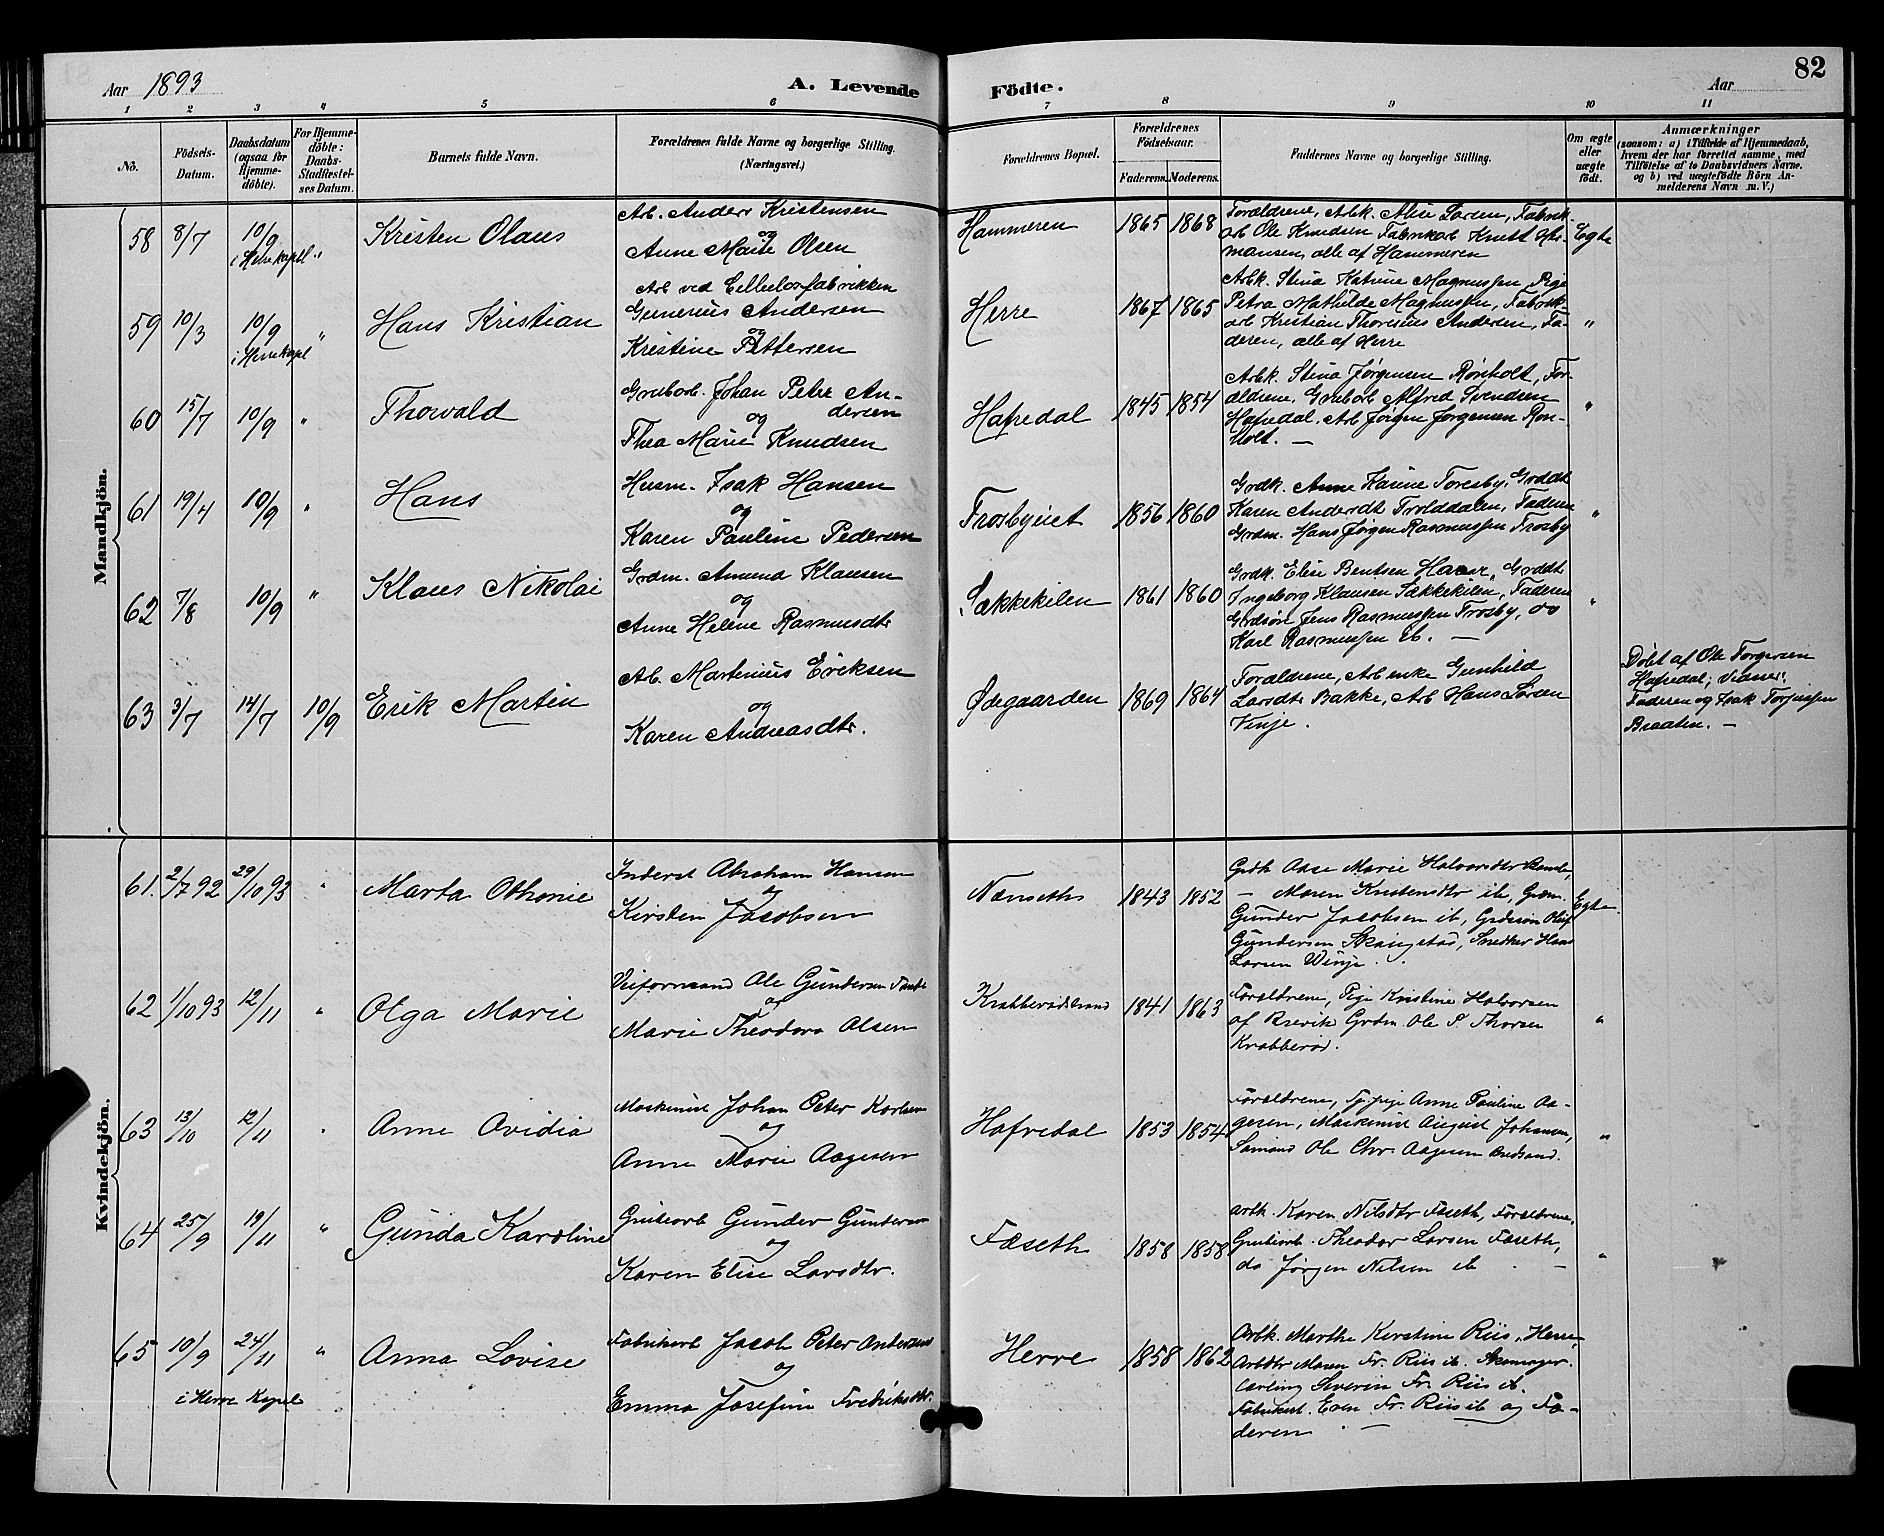 Aar 1893
A. Levende Födte.
Aar
82
1 2 3 4 5 6 7 8 9 10 11
No.
Födsels-Datum.
Daabsdatum (ogsaa for Hjemme-döbte).
For Hjemme-döbte: Daabs-Stadfæstel-ses Datum.
Barnets fulde Navn.
Forældrenes fulde Navne og borgerlige Stilling. (Næringsvei.)
Forældrenes Bopæl.
Forældrenes Födselsaar.
Faderens. Moderens.
Faddernes Navne og borgerlige Stilling.
Om ægte eller uægte födt.
Anmærkninger
(saasom: a) i Tilfælde af Hjemmedaab, hvem der har forrettet samme, med Tilföielse af to Daabsvidners Navne. og b) ved uægtefödte Börn An-melderens Navn m. V.)
Mandkjön.
58 8/7 10/9 i Herre kapel "
Kristen Olaus
Arb. Anders Kristensen
og
Anne Marie Olsen
Hammeren 1865 1868
Forældrene, Arbk. Alise Larsen, Fabrik
arb Ole Knudsen Fabrikarb Knutt Her-
mansen, alle af Hammeren
Egte
59 10/3 10/9 i Herre kapel "
Hans Kristian
Arb ved Cellulosfabrikken
Gunerius Andersen
og
Kristine Pettersen
Herre 1867 1865
Arbk. Stina Katrine Magnussen, Pige
Petra Mathilde Magnussen, Fabrik
arb Kristian Thoresius Andersen, Fa-
deren, alle af Herre
"
60 15/7 10/9 "
Thorvald
Grubarb. Johan Peter An-
dersen
og
Thea Marie Knudsen
Hafredal 1845 1854
Arbk. Stina Jørgensen Rønholt, For-
ældrene, Grubarb Alfred Svendsen
Hafredal, Arb Jørgen Jørgensen Røn-
holt. —
"
61 19/4 10/9 "
Hans
Husm. Isak Hansen
og
Karen Pauline Pedersen
Trosbyeiet 1856 1860
Grdk. Anne Karine Toresby, Grddt
Karen Andersdt Trolddalen, Faderen
Grdm. Hans Jørgen Rasmussen Trosby
"
62 7/8 10/9 "
Klaus Nikolai
Grdm. Amund Klausen
og
Anne Helene Rasmusdtr
Sækkekilen 1861 1860
Grdk. Elise Bentsen Haaer, Grddt
Ingeborg Klausen Sækkekilen, Faderen
Grdsøn Jens Rasmussen Trosby, og
Karl Rasmussen ib. —
"
63 3/7 14/7 10/9
Erik Martin
Arb. Martinius Eriksen
og
Karen Andreasdtr.
Ødegaarden 1869 1864
Forældrene, Arb enke Gunhild
Larsdtr Bakke, Arb Hans Larsen
Vinje.
Døbt af Ole Torgersen
Hafredal; Vidner:
Faderen og Isak Torjussen
Braaten. —
Kvindekjön.
61. 2/7 92 29/10 93 "
Marta Othonie
Inderst Abraham Hansen
og
Kirsten Jacobsen
Nenseth 1843 1852
Grdk Aase Marie Halvorsdtr
— Maren Kristensdtr ib, Grdm.
Gunder Jacobsen ib, Grdssøn Oluf
Gundersen Skaugstad, Snedker Hans
Larsen Winje.
Egte
62 1/10 93 12/11 "
Olga Marie
Veiformand Ole Gundersen
og
Marie Theodora Olsen
Krabberødstrand 1841 1863
Forældrene, Pige Kristine Halvorsen
af Brevik Grdm. Ole P. Thorsen
Krabberød.
"
63 13/10 12/11 "
Anne Ovidia
Maskinist Johan Peter Karlsen
og
Anne Marie Aagesen
Hafredal 1853 1854
Forældrene, Sypige Anne Pauline Aa-
gesen, Maskinist August Johansen,
Sømand Ole Chr. Aagesen Bredsand.
"
64 25/9 19/11 "
Gunda Karoline
Grubearb Gunder Gundersen
og
Karen Elise Larsdtr.
Fæseth 1858 1858
Arbk. Karen Nilsdtr Fæseth, Forældrene,
Grubearb. Theodor Larsen Fæseth,
do Jørgen Nilsen ib —
"
65 10/9 24/11 "
i Herre Kapel
Anna Lovise
Fabrikarb Jacob Peter Andersen
og
Emma Josefine Fredriksdtr.
Herre 1858 1862
Arbk. Marthe Kerstine Riis, Herre,
Arbdtr Maren Fr. Riis ib. Skomager-
lærling Severin Fr. Riis ib.
Fabrikarb. Even Fr. Riis ib og Fa-
deren. —